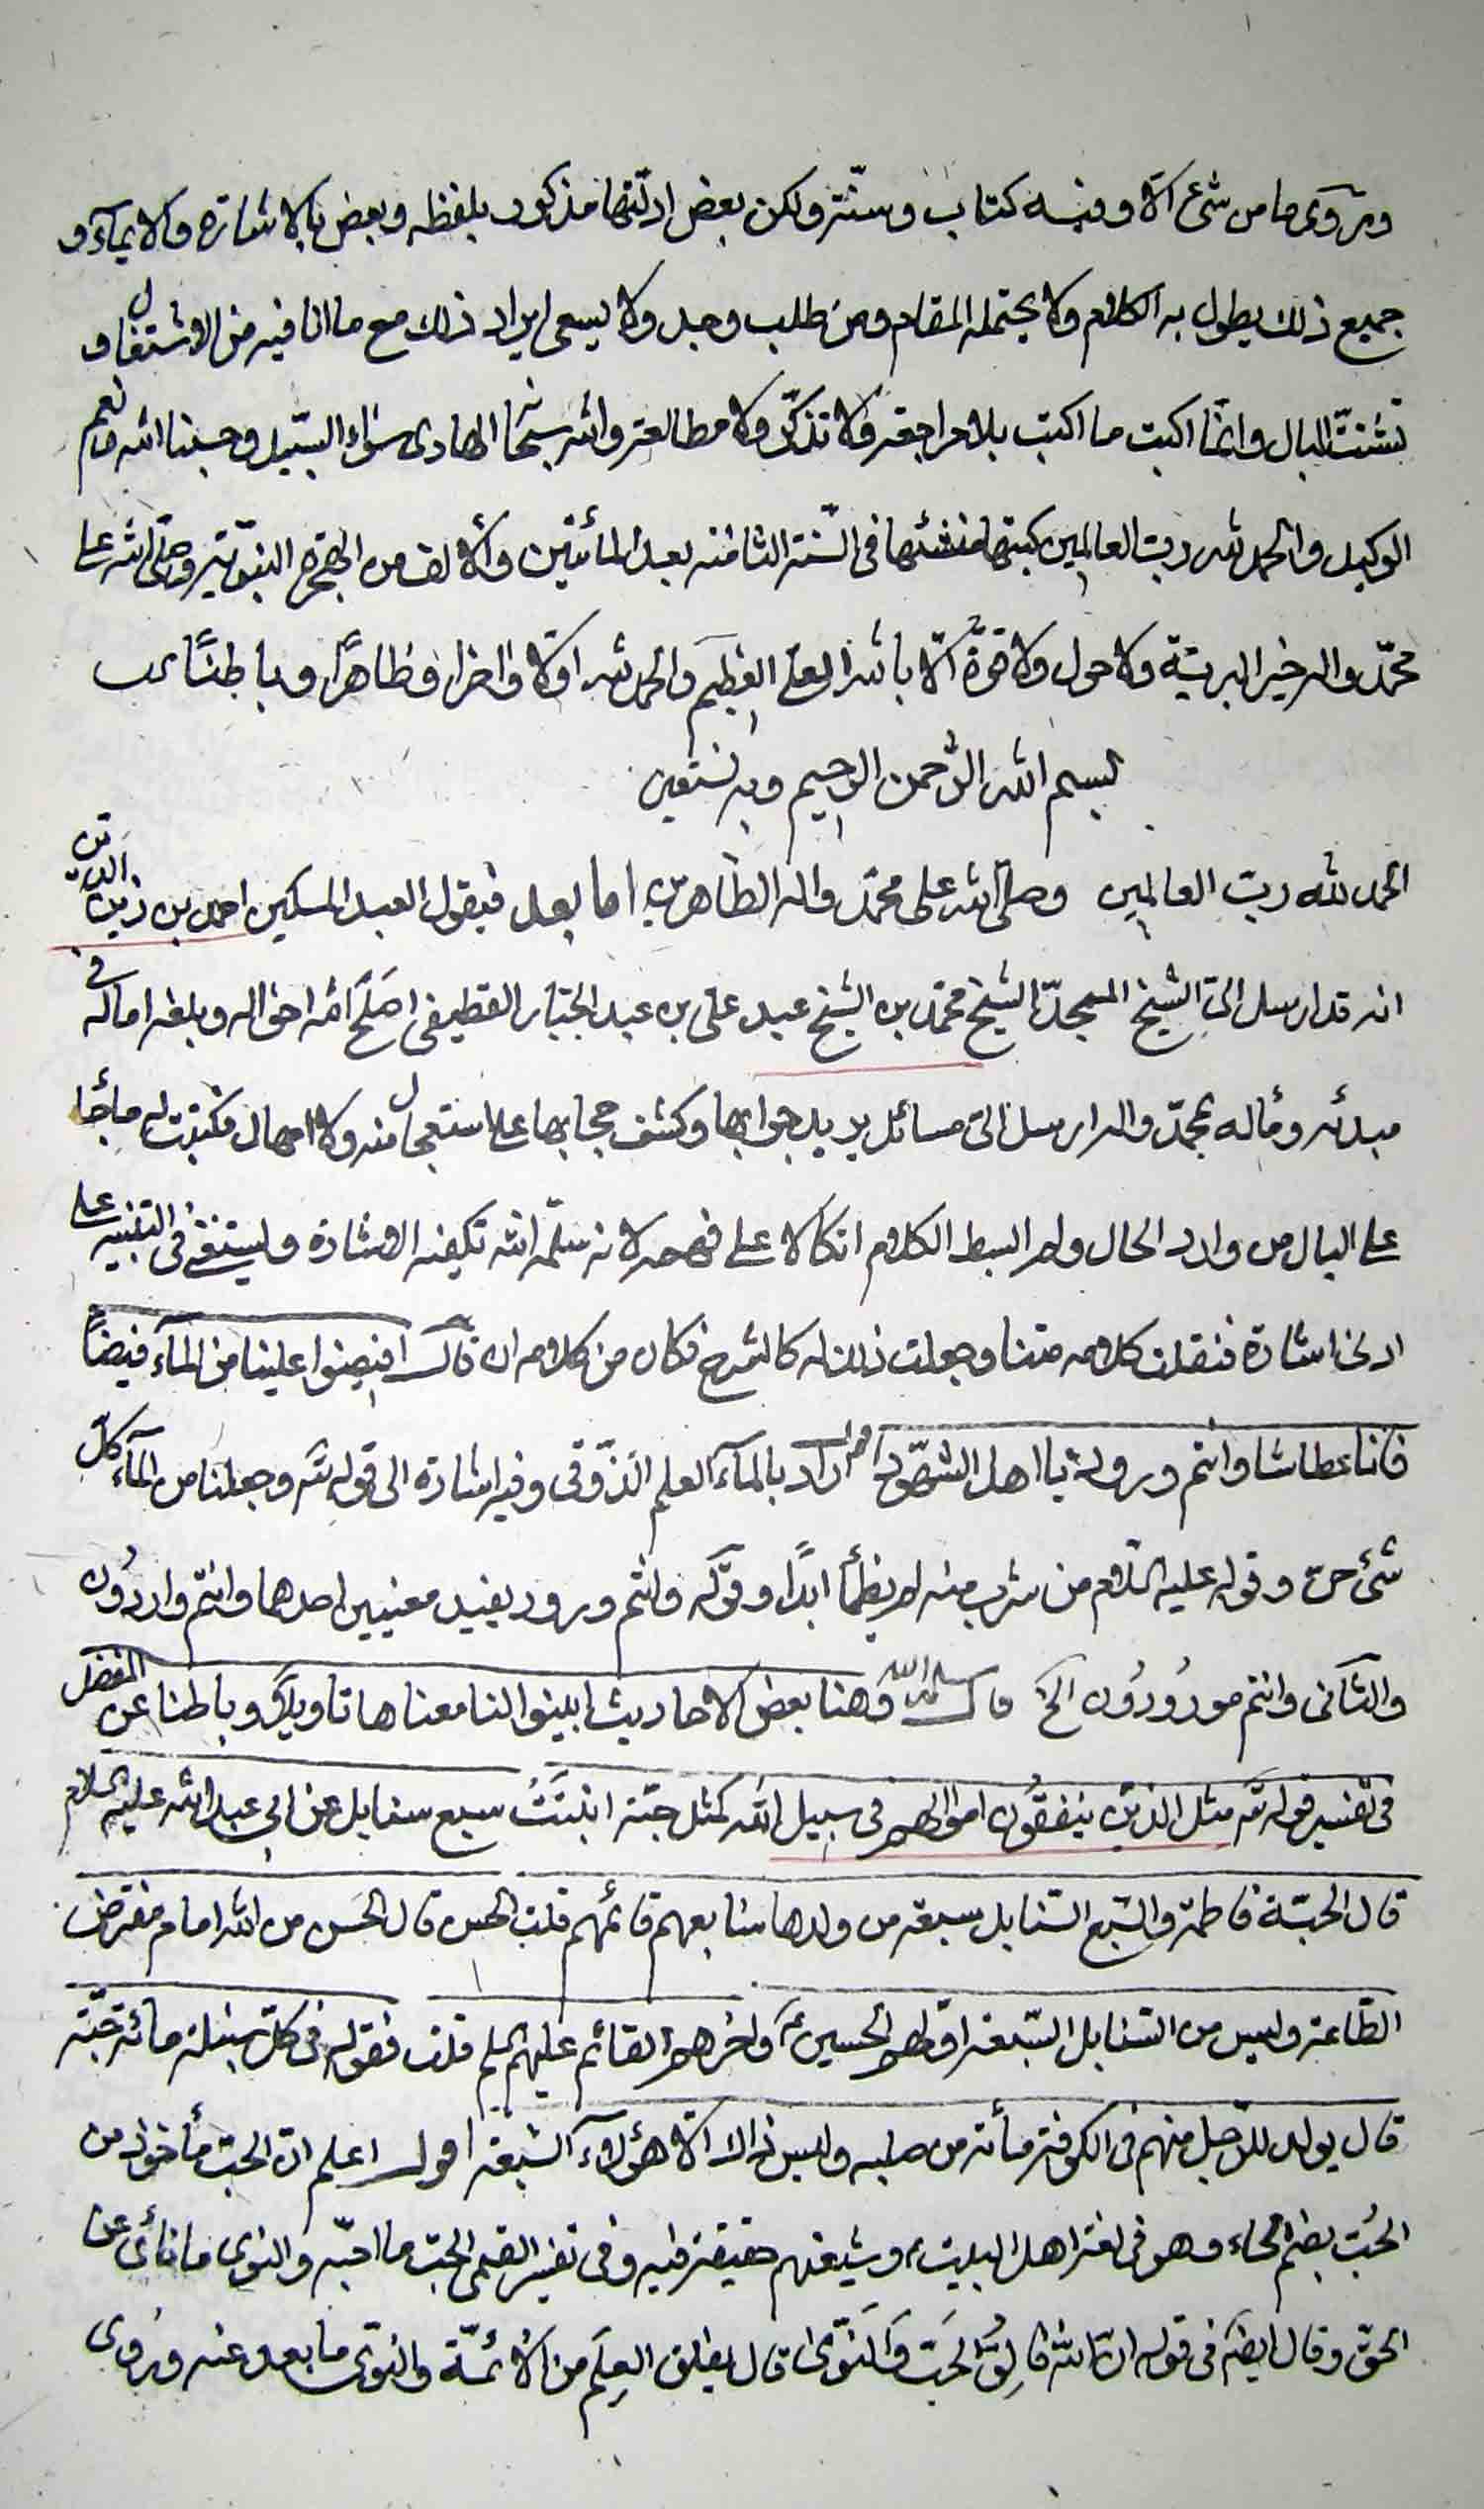 وتروى ما من شئ الا وفيه كتاب وسنّة ولكن بعض ادلّتها مذكور بلفظه وبعض بالاشارة والايمآء و
جميع ذلك يطول به الكلام ولا يحتمله المقام ومن طلب وجد ولا يسعى ايراد ذلك مع ما انا فيه من الاشتغال و
تشتّت البال وانما اكتب ما اكتب بلا مراجعة ولا تذكّر ولا مطالعة والله سبحانه الهادى سواء السّبيل وحسبنا الله ونعم
الوكيل والحمد لله رب العالمين كتبها منشئها فى السّنة الثامنه بعد المأتين والالف من الهجرة النبوّية وصلّى الله على
محمّد واله خير البرية ولا حول ولا قوّة الّا بالله العلى العظيم والحمد لله اوّلا واخرا وظاهرًا وباطنًا
بسم الله الرّحمن الرحيم وبه نستعين
الحمد لله رب العالمين وصلّى الله على محمّد واله الطّاهرين اما بعد فيقول العبد المسكين احمد بن زين الدين
انه قد ارسل الىّ الشيخ الممجدّ الشيخ محمّد بن الشيخ عبد على بن عبد الجبّار القطيفى اصلح الله احواله وبلغه اماله فى
مبدئه ومأله بمحمّد واله ارسل الىّ مسائل يريد جوابها وكشف حجابها على استعجال منه ولا امهال فكتبت له ما جا
على البال من وارد الحال ولم ابسط الكلام اتكالا على فهمه لانه سلّمه الله تكفيه الاشارة وليستغنى فى التنبيه على
ادنى اشارة فنقلت كلامه متنا وجعلت ذلك له كالشرح فكان من كلامه ان قال افيضوا علينا من المآء فيضاً
فانا عطاشا وانتم ورود يا اهل الشهود اقول اراد بالمآء العلم الذّوقى وفيه اشارة الى قوله تعَ وجعلنا من المآء كلّ
شئ حىّ وقوله عليه السّلام من شرب منه لم يظمأ ابدًا وقوله وانتم ورود يفيد معنيين احدهما وانتم واردُون
والثانى وانتم مورُودُون الخ قال سلمه الله وهنا بعض الاحاديث ابينوا لنا معناها تاويلاً وباطنا عن المفضل
فى تفسير قوله تعَ مثل الذين ينفقُون اموالهم فى سبيل الله كمثل حبّة انبتَتْ سبع سنابل عن ابى عبد الله عليه السلام
قال الحبّة فاطمة والسّبع السّنابل سبعة من ولدها سابعهم قائمهم قلت الحسن قال الحسن من الله امام مفترض
الطّاعة وليس من السّنابل السّبعة اوّلهم الحسينؑ واخرهم القائم عليهم السلم قلت فقوله فى كلّ سنبلة مائة حبّة
قال يولد للرّجل منهم فى الكوفة مأته من صلبه وليس ذاك الا هؤلآء السّبعة اقول اعلم انّ الحبّ مأخوذ من
الحُبّ بضم الحاء وهو فى لغة اهل البيتؑ وشيعتهم حقيقة فيه وفى تفسير القمى الحبّ ما احبّه والنوى ما نأى عن
الحقّ وقال ايضا فى قوله انّ الله فالِقُ الحَبّ وَالنّوَى قال يفلق العِلمَ من الائمّة والنّوَى ما بعد عنه ورُوى